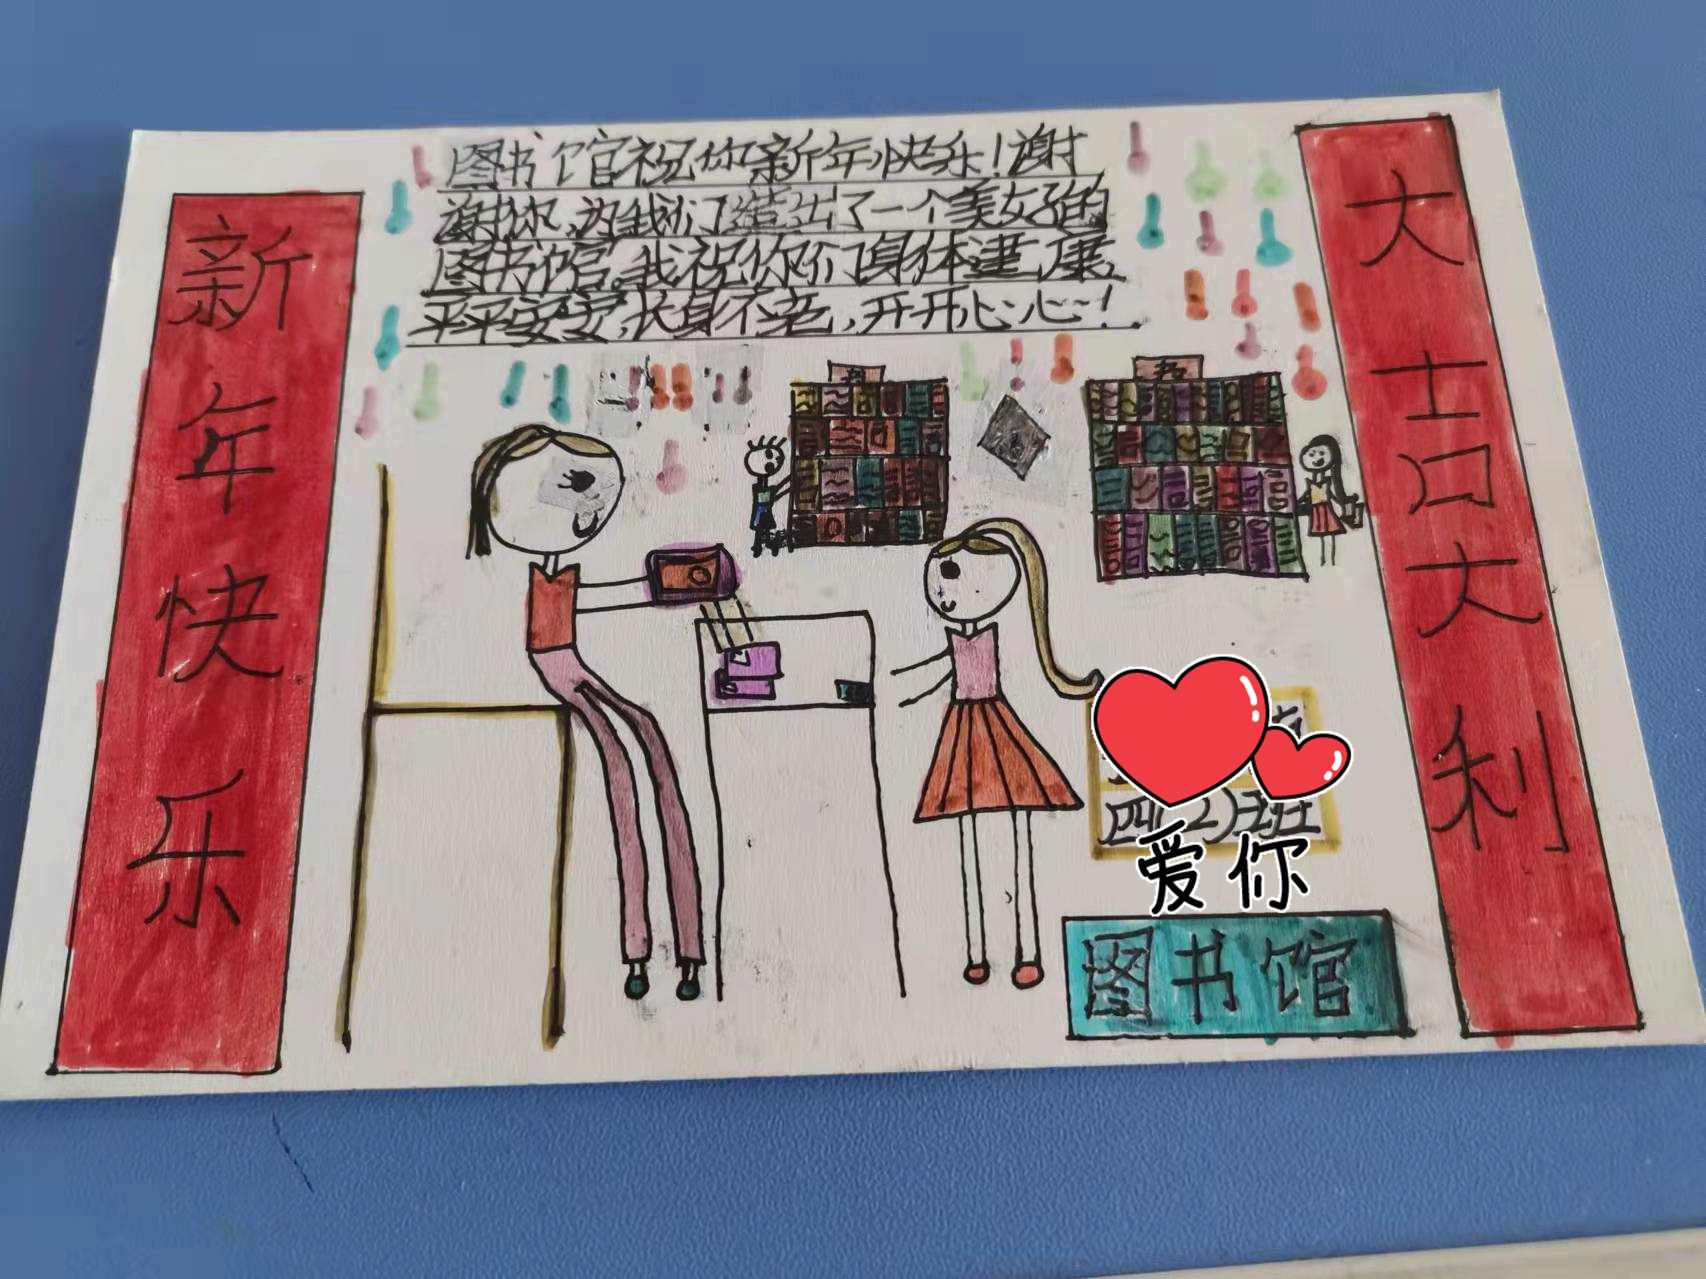 图书馆祝你新年快乐！谢
谢你，为我们造出了一个美好的
图书馆。我祝你们身体建康，
平平安安，长身不老，开开心心~！
新年快乐
大吉大利
书
书
四(2)班
爱你
图书馆